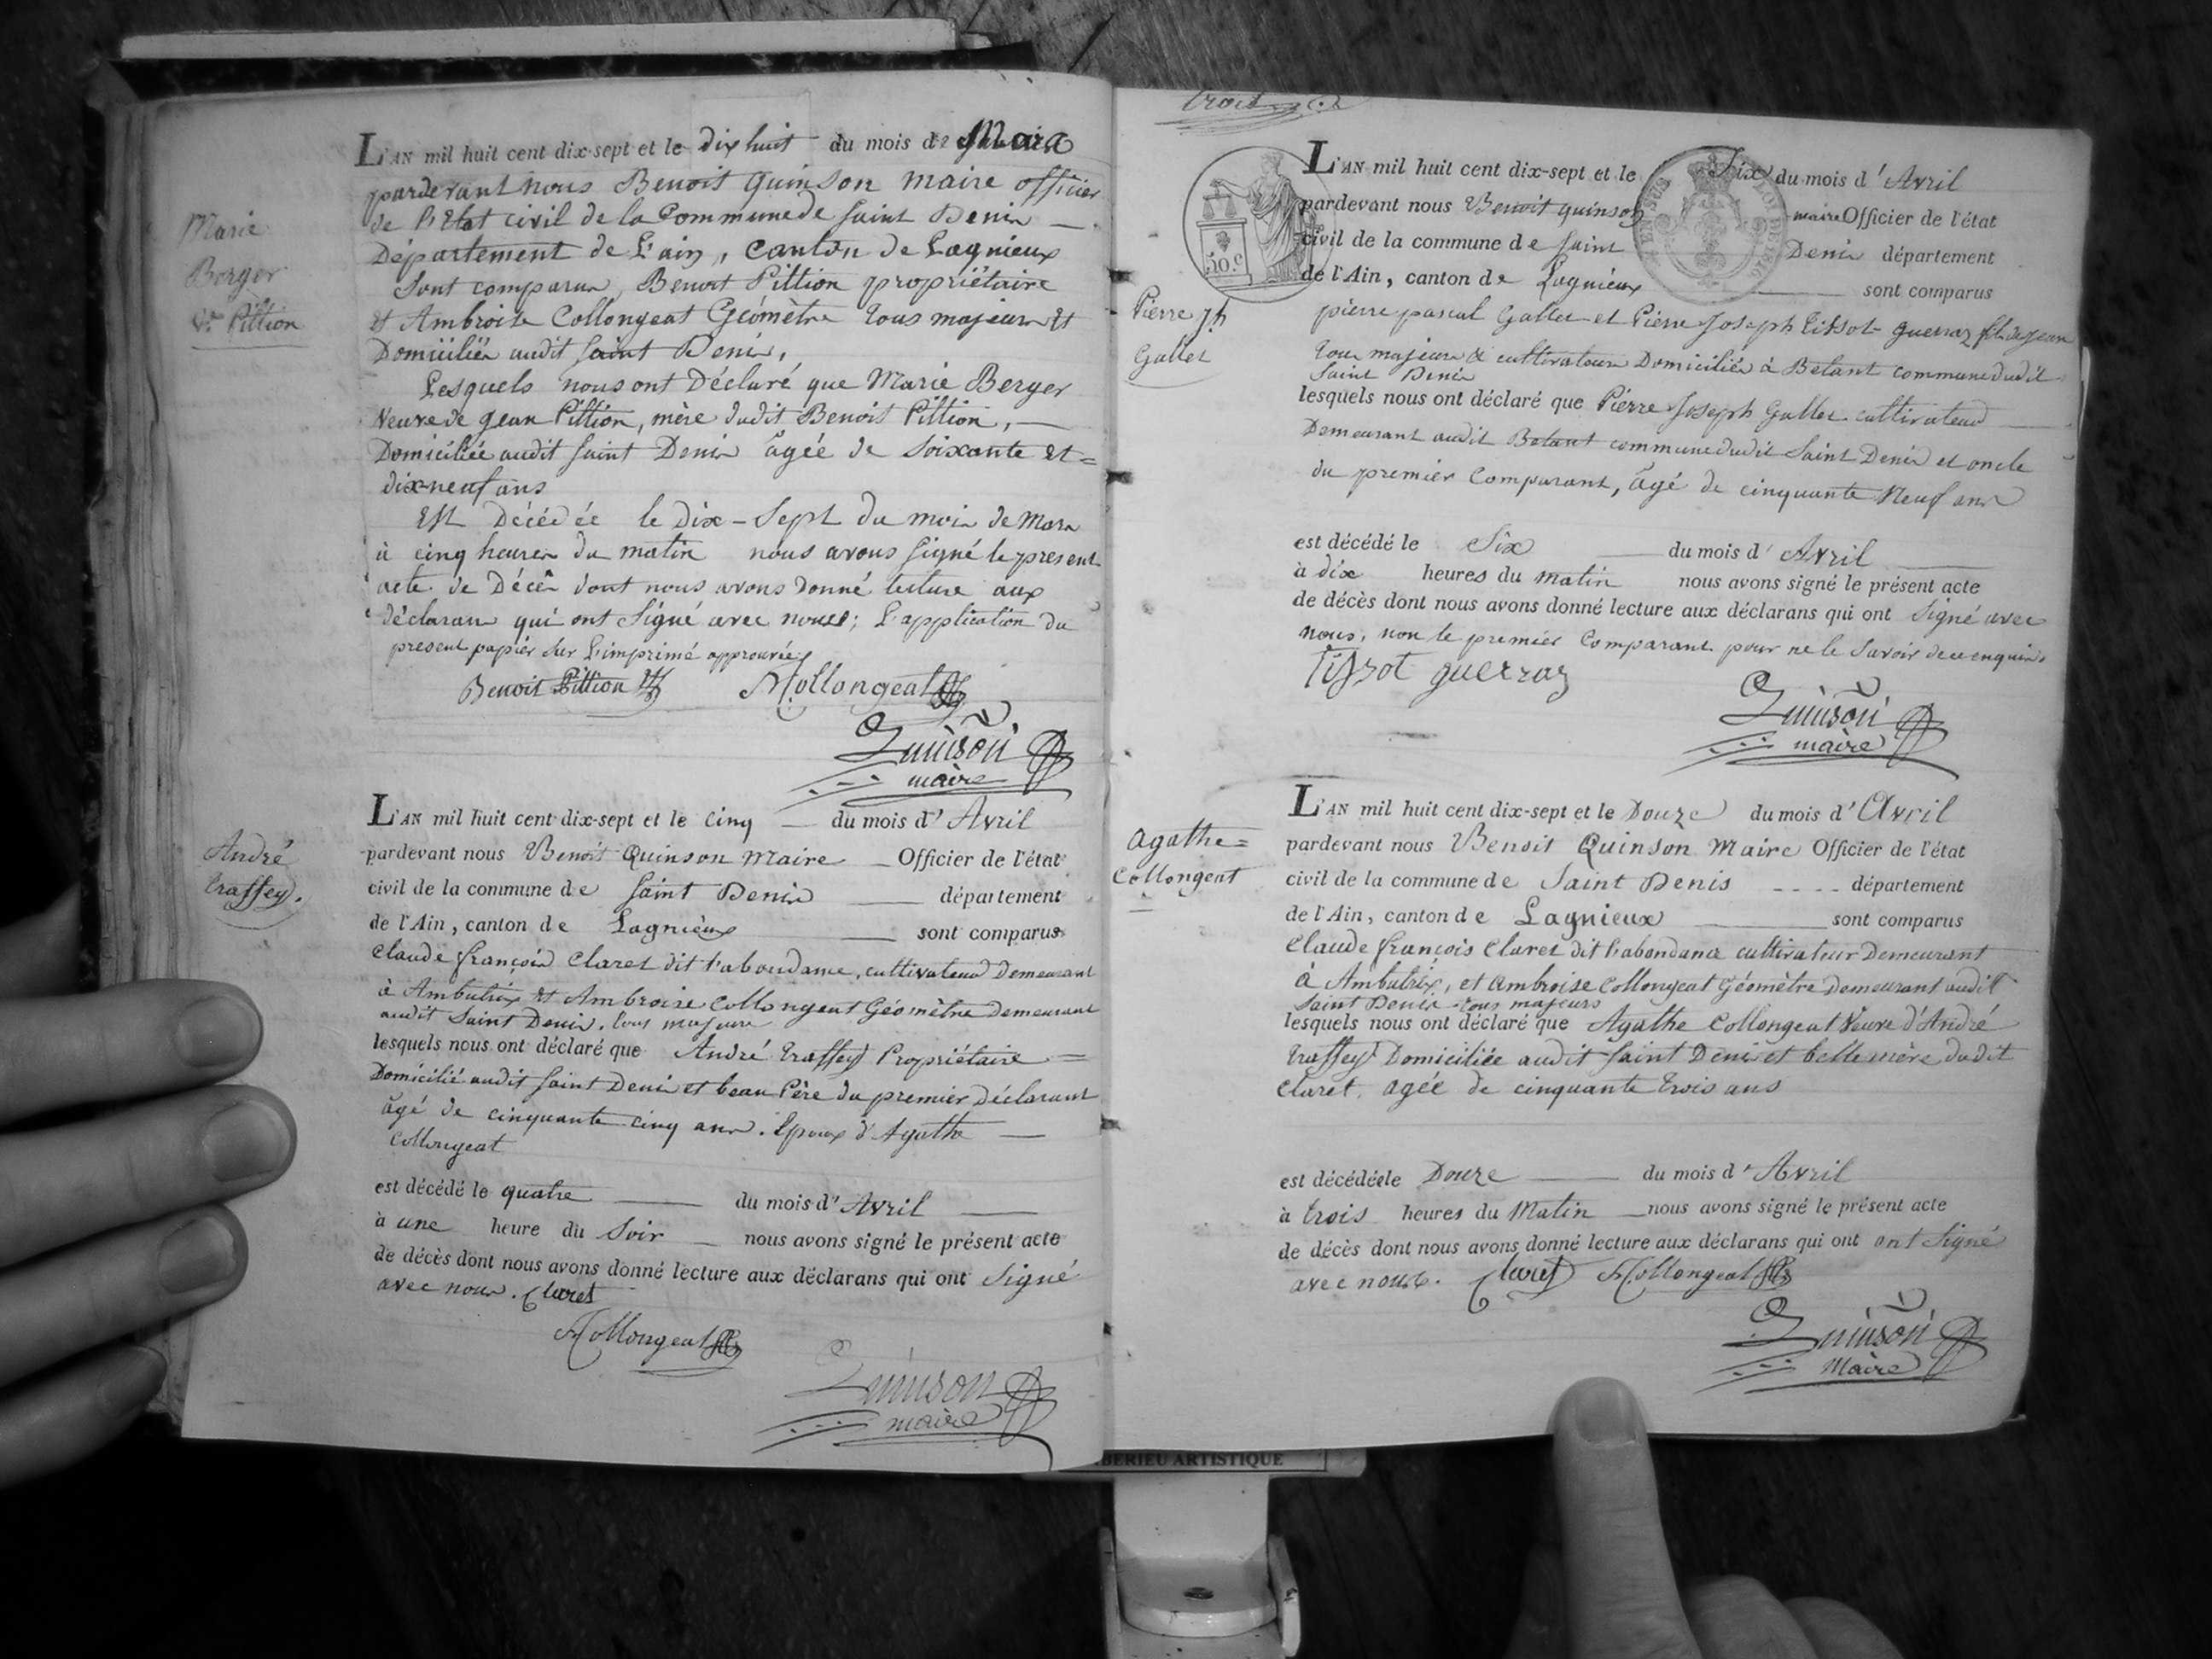 Marie
Berger
Ve Pittion
L'AN mil huit cent dix-sept et le dix huit du mois de Mars
pardevant nous Benoit Quinson Maire officier
de l'Etat civil de la Commune de Saint Denis
Département de l'ain, Canton de Lagnieux
Sont comparus, Benoit Pittion propriétaire
et Ambroise Collongeat Géomètre tous majeurs et
Domiciliés audit Saint Denis,
Lesquels nous ont Déclaré que Marie Berger
Veuve de Jean Pittion, mère dudit Benoit Pittion,
Domiciliée audit Saint Denis âgée de Soixante et =
dix-neuf ans
Est Décédée le Dix-Sept du mois de Mars
à cinq heures du matin nous avons signé le present
acte de Décès dont nous avons donné lecture aux
déclarans qui ont Signé avec nous; L'application du
present papier sur L'imprimé approuvée
Benoit Pittion Collongeat
Quinson
maire
André
traffey.
L'AN mil huit cent dix-sept et le cinq du mois d'Avril
pardevant nous Benoit Quinson Maire Officier de l'état
civil de la commune de Saint Denis département
de l'Ain, canton de Lagnieux sont comparus
Claude françois Claret dit l'abondance, cultivateur Demeurant
à Ambutrix et Ambroise Collongeat Géomètre demeurant
audit Saint Denis. tous majeurs
lesquels nous ont déclaré que André traffey Propriétaire =
Domicilié audit Saint Denis et beau Père du premier déclarant
âgé de cinquante cinq ans. Epoux d'Agathe
Collongeat
est décédé le quatre du mois d'Avril
à une heure du Soir nous avons signé le présent acte
de décès dont nous avons donné lecture aux déclarans qui ont Signé
avec nous. Claret
Collongeat
Quinson
maire
trois
50.c
Pierre Jh
Gallet
L'AN mil huit cent dix-sept et le Six du mois d'Avril
pardevant nous Benoit quinson maire Officier de l'état
civil de la commune de Saint Denis département
de l'Ain, canton de Lagnieux sont comparus
pierre pascal Gallet et Pierre Joseph Tissot guerraz fils de jean
tous majeurs & cultivateurs Domiciliés à Betant commune dudit
Saint Denis
lesquels nous ont déclaré que Pierre Joseph Gallet cultivateur
Demeurant audit Betant commune dudit Saint Denis et oncle
du premier Comparant, âgé de cinquante Neuf ans
est décédé le Six du mois d'Avril
à dix heures du matin nous avons signé le présent acte
de décès dont nous avons donné lecture aux déclarans qui ont Signé avec
nous, non le premier Comparant pour ne le Savoir de ce enquis.
Tissot guerraz
Quinson
maire
Agathe =
Collongeat
L'AN mil huit cent dix-sept et le Douze du mois d'Avril
pardevant nous Benoit Quinson Maire Officier de l'état
civil de la commune de Saint Denis département
de l'Ain, canton de Lagnieux sont comparus
Claude françois Claret dit l'abondance cultivateur Demeurant
à Ambutrix, et Ambroise Collongeat Géomètre Demeurant audit
Saint Denis tous majeurs
lesquels nous ont déclaré que Agathe Collongeat Veuve d'André
traffey Domiciliée audit Saint Denis et belle mère dudit
Claret, agée de cinquante trois ans
est décédée le Douze du mois d'Avril
à trois heures du Matin nous avons signé le présent acte
de décès dont nous avons donné lecture aux déclarans qui ont ont Signé
avec nous. Claret Collongeat
Quinson
Maire
BERIEU ARTISTIQUE